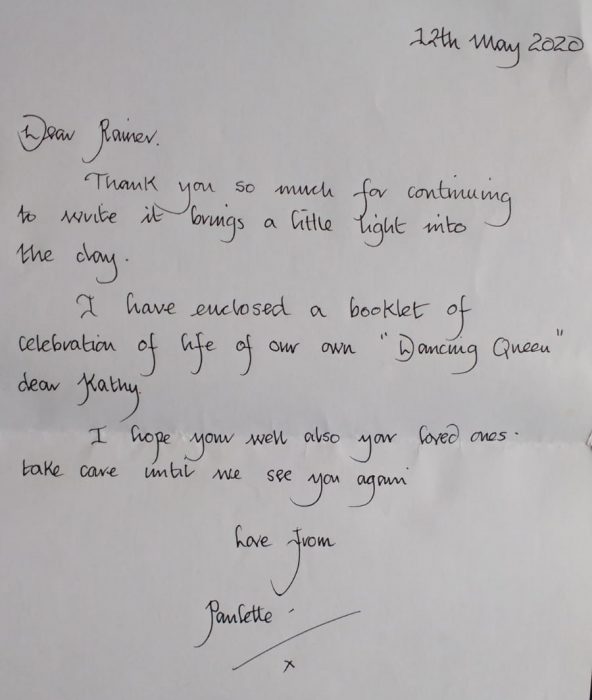 12th May 2020
Dear Rainer.
Thank you so much for continuing
to write it brings a little light into
the day.
I have enclosed a booklet of
celebration of life of our own "Dancing Queen"
dear Kathy.
I hope your well also your loved ones.
take care until we see you again
Love from
Paulette
x